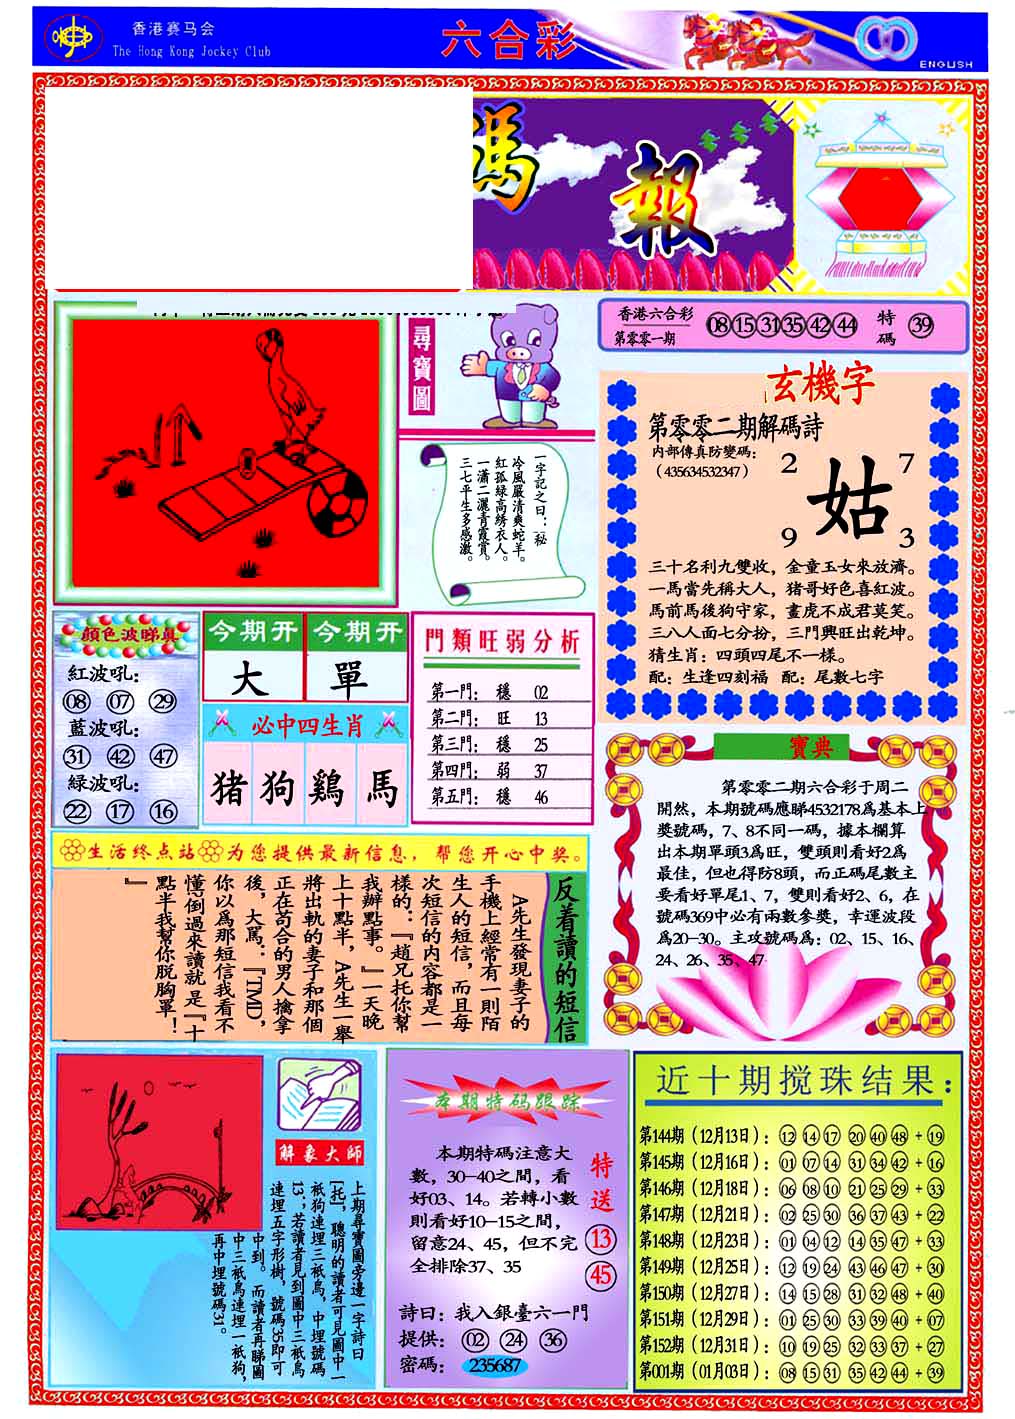 香港赛马会
The Hong Kong Jockey Club
六合彩
ENGLISH
碼報
尋寶圖
香港六合彩
第零零一期
08 15 31 35 42 44
特碼
39
一字記之曰：秘
冷風嚴清爽蛇羊。
紅孤緑高綉衣人。
一瀟二灑青霞賞。
三七平生多感激。
玄機字
第零零二期解碼詩
内部傳真防變碼：
（435634532347）
2 7
姑
9 3
三十名利九雙收，金童玉女來放濟。
一馬當先稱大人，猪哥好色喜紅波。
馬前馬後狗守家，畫虎不成君莫笑。
三八人面七分扮，三門興旺出乾坤。
猜生肖：四頭四尾不一樣。
配：生逢四刻福 配：尾數七字
顔色波睇真
紅波吼：
08 07 29
藍波吼：
31 42 47
緑波吼：
22 17 16
今期开 今期开
大 單
必中四生肖
猪 狗 鷄 馬
門類旺弱分析
第一門： 穩 02
第二門： 旺 13
第三門： 穩 25
第四門： 弱 37
第五門： 穩 46
寶典
第零零二期六合彩于周二
開然，本期號碼應睇4532178爲基本上
奬號碼，7、8不同一碼，據本欄算
出本期單頭3爲旺，雙頭則看好2爲
最佳，但也得防8頭，而正碼尾數主
要看好單尾1、7，雙則看好2、6，在
號碼369中必有兩數參奬，幸運波段
爲20–30。主攻號碼爲：02、15、16、
24、26、35、47
生活终点站 为您提供最新信息，帮您开心中奖。
反着讀的短信
A先生發現妻子的
手機上經常有一則陌
生人的短信，而且每
次短信的内容都是一
樣的：『趙兄托你幫
我辦點事。』一天晚
上十點半，A先生一舉
將出軌的妻子和那個
正在苟合的男人擒拿
後，大罵：『TMD，
你以爲那短信我看不
懂倒過來讀就是『十
點半我幫你脱胸罩！
』
解象大師
上期尋寶圖旁邊一字詩曰
[托]，聰明的讀者可見圖中一
衹狗連埋三衹鳥，中埋號碼
13；若讀者見到圖中三衹鳥
連埋五字形樹，號碼35即可
中到。而讀者再睇圖
中三衹鳥連埋一衹狗，
再中埋號碼31。
本期特码跟踪
本期特碼注意大
數，30–40之間，看
好03、14。若轉小數
則看好10–15之間，
留意24、45，但不完
全排除37、35
特送
13
45
詩曰：我入銀臺六一門
提供： 02 24 36
密碼： 235687
近十期搅珠结果：
第144期（12月13日）：12 14 17 20 40 48 + 19
第145期（12月16日）：01 07 14 31 34 42 + 16
第146期（12月18日）：06 08 10 21 25 29 + 33
第147期（12月21日）：02 25 30 36 37 43 + 22
第148期（12月23日）：01 04 12 14 35 47 + 33
第149期（12月25日）：12 19 24 43 46 47 + 30
第150期（12月27日）：14 15 28 31 32 48 + 40
第151期（12月29日）：01 25 30 33 39 40 + 07
第152期（12月31日）：10 19 25 32 33 37 + 27
第001期（01月03日）：08 15 31 35 42 44 + 39